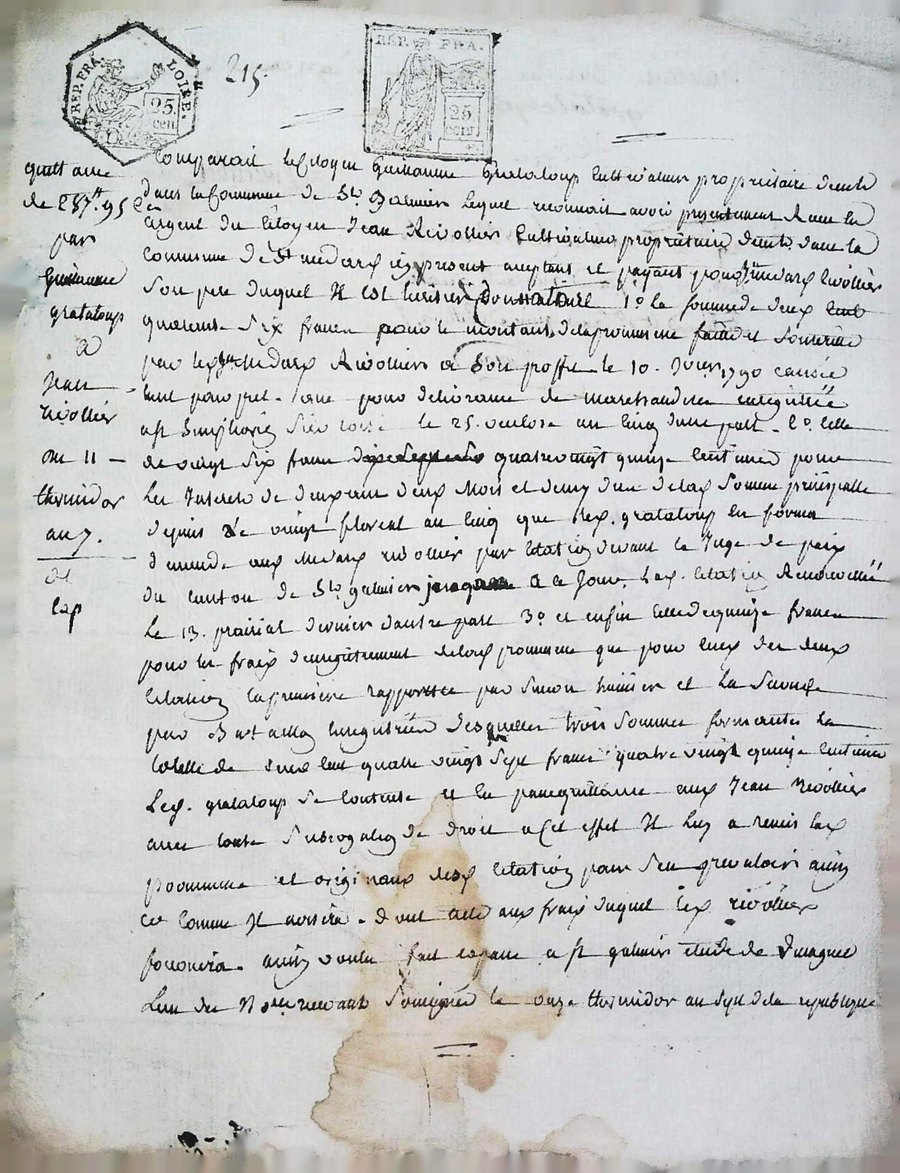 REP. FRA. LOIRE.
25
cen
215.
REP. FRA.
25
cent
quittance
de 287.tt 95 c
par
Guillaume
grataloup
a
Jean
rivollier
du 11
thermidor
an 7.
Comparait le Citoyen Guillaume Grataloup Cultivateur propriétaire demt
dans la Commune de St Galmier lequel reconnoit avoir presentement Recu en
argent du Citoyen Jean Rivollier Cultivateur propriétaire demt. dans la
Commune de St medard icy present acceptant et payant pour medard Rivollier
Son pere duquel Il est héritier 1o. la somme de deux Cent
quarente Six francs pour le montant de la promesse faitte et Souscritte
par led. medard Rivollier a Son proffit le 10. 1790 causée
tant pour pret que pour delivrance de marchandise enregistrée
a St Simphorien le 25. ventose an cinq d'une part. 2o. Celle
de vingt Six francs quatrevingt quinze Centimes pour
Les Interets de deux ans deux Mois et demy de lad. Somme principalle
depuis le vingt floreal an cinq que led. grataloup en forma
demande aud. medard rivollier par Citation devant le Juge de paix
du Canton de St galmier a ce Jour. lad. Citation Renouvellée
Le 13. prairial dernier d'autre part 3o. et enfin Celle de quinze francs
pour les fraix d'enregistrement de lad. promesse que pour Ceux des deux
Citations la premiere rapportée par huissier et la Seconde
par enregistrées desquelles trois Sommes formantes la
totalle de deux Cent quatre vingt Sept francs quatre vingt quinze Centimes
Led. grataloup Se Contente et en passe quittance aud. Jean Rivollier
avec toute Subrogation de droit a Cet effet Il luy a remis lad.
promesse et originaux desd. Citations pour S'en prevaloir ainsy
et Comme Il avisera. dont acte aux fraix duquel led. rivollier
fournira. ainsy voulu fait et passé a St galmier étude de
L'un des Nores. recevant Soussignés le onze thermidor an Sept de la republique